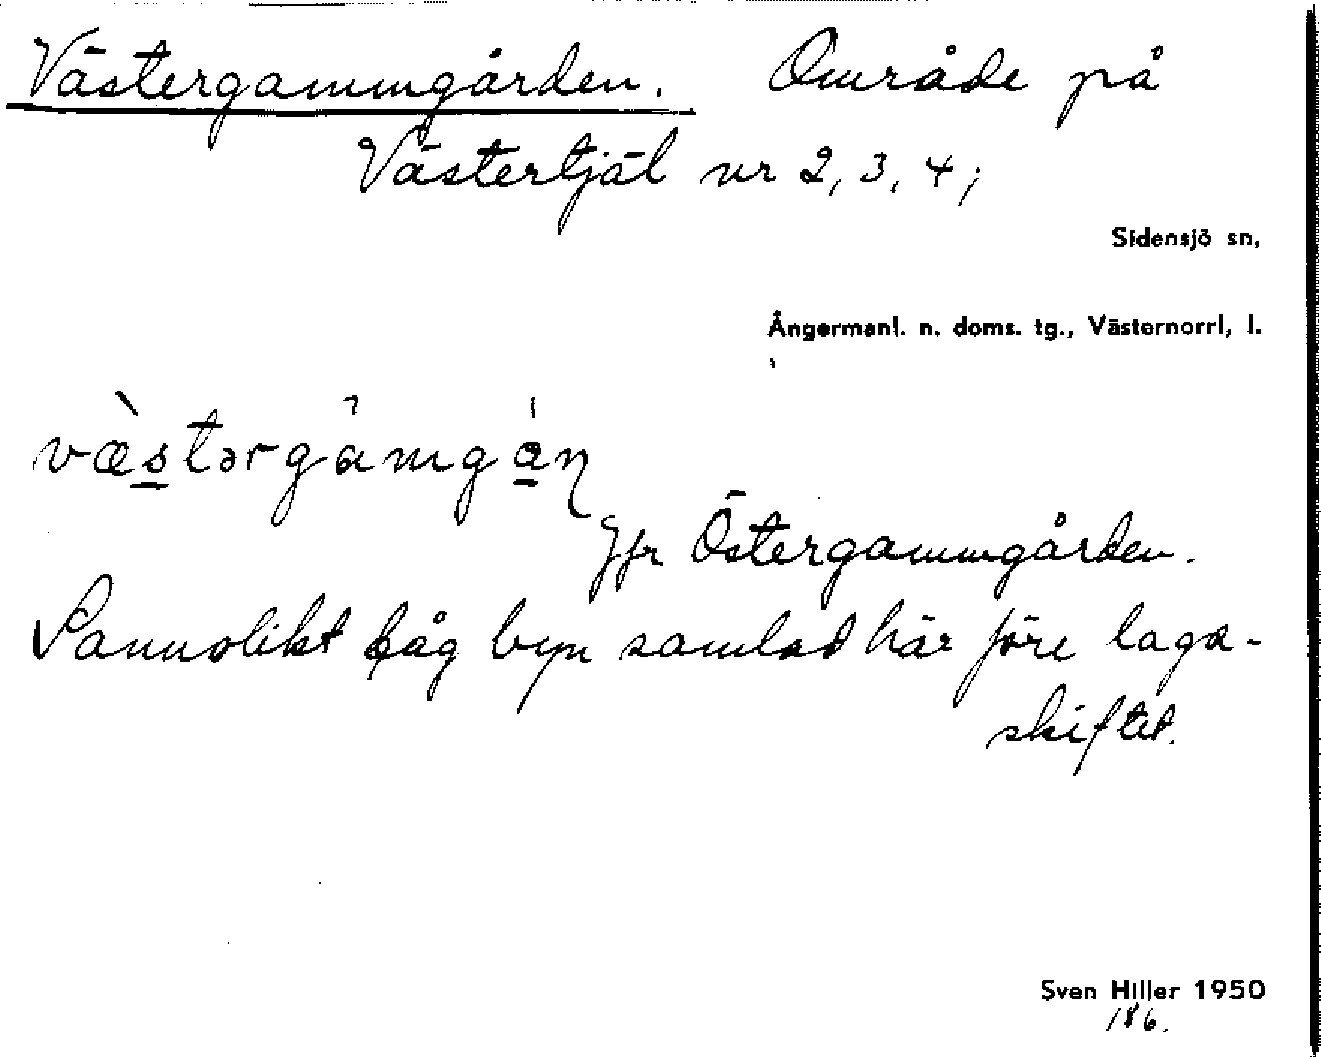 Västergammgården. Område på
Västertjäl nr 2, 3, 4;
Sidensjö sn,
Ångermanl. n. doms. tg., Västernorrl, l.
Jfr Östergammgården.
Sannolikt låg byn samlad här före laga-
skiftet.
Sven Hiller 1950
186.